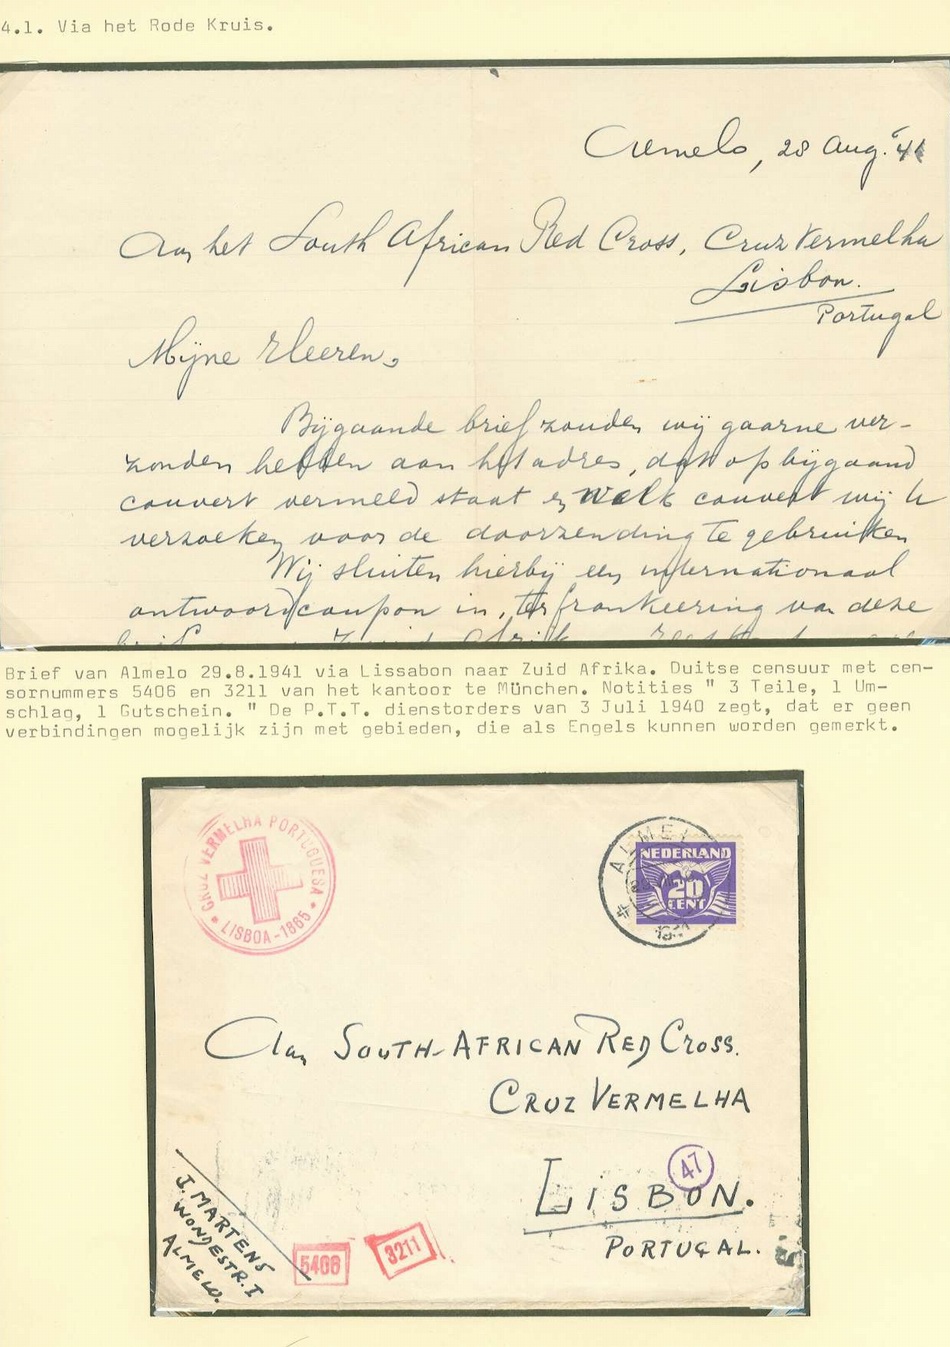 4.1. Via het Rode Kruis.
Almelo, 28 Aug. '41
Aan het South African Red Cross, Cruz Vermelha
Lisbon.
Portugal
Mijne Heeren,
Bijgaande brief zouden wij gaarne ver-
zonden hebben aan het adres, dat op bijgaand
couvert vermeld staat en welk couvert wij U
verzoeken voor de doorzending te gebruiken
Wij sluiten hierbij een internationaal
antwoordcoupon in, ter frankeering van deze
Brief van Almelo 29.8.1941 via Lissabon naar Zuid Afrika. Duitse censuur met cen-
sornummers 5406 en 3211 van het kantoor te München. Notities " 3 Teile, 1 Um-
schlag, 1 Gutschein. " De P.T.T. dienstorders van 3 Juli 1940 zegt, dat er geen
verbindingen mogelijk zijn met gebieden, die als Engels kunnen worden gemerkt.
CRUZ VERMELHA PORTUGUESA
LISBOA-1865
ALMELO
NEDERLAND
20
CENT
Aan SOUTH-AFRICAN RED CROSS.
CRUZ VERMELHA
47
LISBON.
PORTUGAL.
J. MARTENS
WONDESTR. 1
ALMELO.
5406
3211